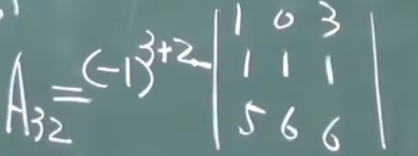 A₃₂ = (-1)³⁺² | 1 0 3 |
| 1 1 1 |
| 5 6 6 |